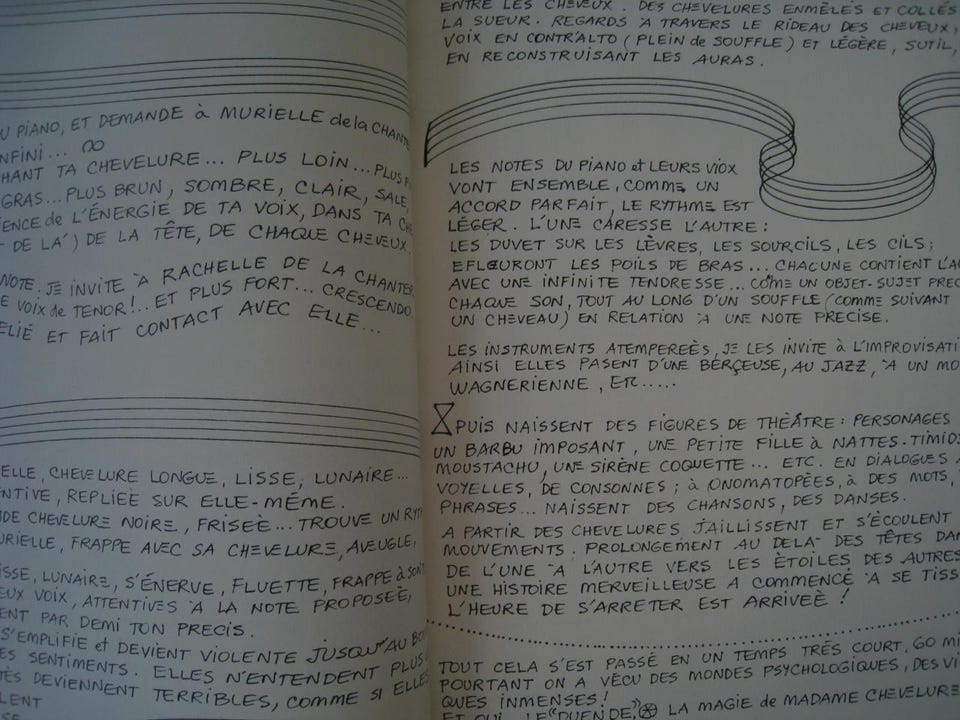 U PIANO, ET DEMANDE à MURIELLE de la CHANTE
NFINI... ∞
HANT TA CHEVELURE... PLUS LOIN... PLUS
GRAS... PLUS BRUN, SOMBRE, CLAIR, SALE,
IENCE de L'ÉNERGIE DE TA VOIX, DANS TA CH
- DE LA') DE LA TÊTE, DE CHAQUE CHEVEUX.
NOTE. JE INVITE À RACHELLE DE LA CHANTER
E VOIX de TENOR!.. ET PLUS FORT... CRESCENDO
ELIÉ ET FAIT CONTACT AVEC ELLE...
ELLE, CHEVELURE LONGUE, LISSE, LUNAIRE...
ENTIVE, REPLIEE SUR ELLE-MÊME.
DE CHEVELURE NOIRE, FRISEÈ... TROUVE UN RYT
URIELLE, FRAPPE AVEC SA CHEVELURE, AVEUGLE,
ISSE, LUNAIRE, S'ÉNERVE, FLUETTE, FRAPPE à SON
EUX VOIX, ATTENTIVES À LA NOTE PROPOSEÈ,
ENT PAR DEMI TON PRECIS.
S'EMPLIFIE et DEVIENT VIOLENTE JUSQU'AU BO
ES SENTIMENTS. ELLES N'ENTENDENT PLUS
TÈS DEVIENNENT TERRIBLES, COMME SI ELLES
LENT
SE
ENTRE LES CHEVEUX. DES CHEVELURES ENMÊLÉS ET COLLÉS
LA SUEUR. REGARDS À TRAVERS LE RIDEAU DES CHEVEUX,
VOIX EN CONTR'ALTO (PLEIN de SOUFFLE) ET LÉGÈRE, SUTIL,
EN RECONSTRUISANT LES AURAS.
LES NOTES DU PIANO et LEURS VIOX
VONT ENSEMBLE, COMME UN
ACCORD PARFAIT, LE RYTHME EST
LÉGER. L'UNE CARESSE L'AUTRE:
LES DUVET SUR LES LÈVRES, LES SOURCILS, LES CILS;
EFLŒURONT LES POILS DE BRAS... CHACUNE CONTIENT L'AU
AVEC UNE INFINITE TENDRESSE... COME UN OBJET-SUJET PREC
CHAQUE SON, TOUT AU LONG D'UN SOUFFLE (COMME SUIVANT
UN CHEVEAU) EN RELATION À UNE NOTE PRECISE.
LES INSTRUMENTS ATEMPEREÈS, JE LES INVITE à L'IMPROVISATI
AINSI ELLES PASENT D'UNE BERÇEUSE, AU JAZZ, À UN MO
WAGNERIENNE, ETC.....
PUIS NAISSENT DES FIGURES DE THÈÂTRE: PERSONAGES
UN BARBU IMPOSANT, UNE PETITE FILLE à NATTES. TIMIDE
MOUSTACHU, UNE SIRÈNE COQUETTE... ETC. EN DIALOGUES
VOYELLES, DE CONSONNES; à ONOMATOPÉES, à DES MOTS,
PHRASES... NAISSENT DES CHANSONS, DES DANSES.
A PARTIR DES CHEVELURES JAILLISSENT ET S'ÉCOULENT
MOUVEMENTS. PROLONGEMENT AU DELA- DES TÊTES DAN
DE L'UNE À L'AUTRE VERS LES ÈTOILES DES AUTRES
UNE HISTOIRE MERVEILLEUSE A COMMENCÉ À SE TISS
L'HEURE DE S'ARRETER EST ARRIVEÈ!
TOUT CELA S'EST PASSÉ EN UN TEMPS TRÉS COURT, 60 MI
POURTANT ON A VÈCU DES MONDES PSYCHOLOGIQUES, DES VI
QUES INMENSES!
ET OUI, LE "DUENDE," LA MAGIE de MADAME CHEVELURE